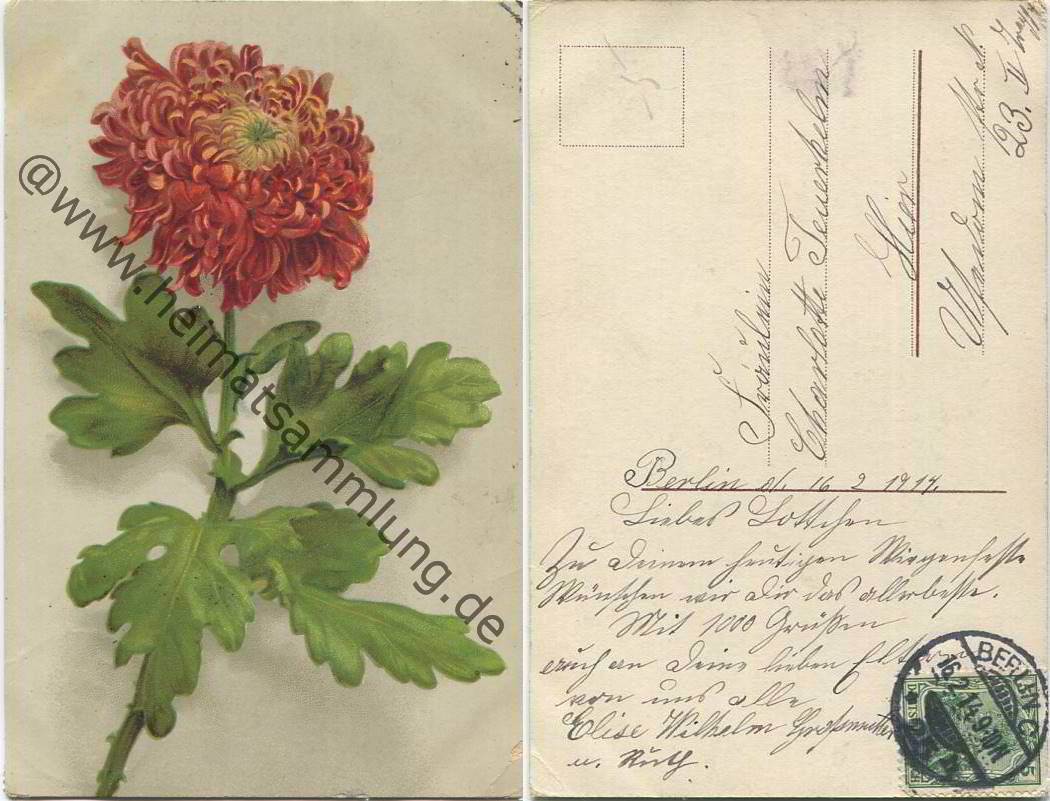 @www.heimatsammlung.de
5
Fräulein
Charlotte Feuerhelm
Hier
23. II
Berlin d. 16 2 1914.
Liebes Lottchen
Zu Deinem heutigen Wiegenfeste
Wünschen wir Dir das allerbeste.
Mit 1000 Grüßen
auch an Deine lieben Eltern
von uns alle
Elise Wilhelm Großmutter
u. Ruth.
BERLIN C.
16.2.14.9-10N
5